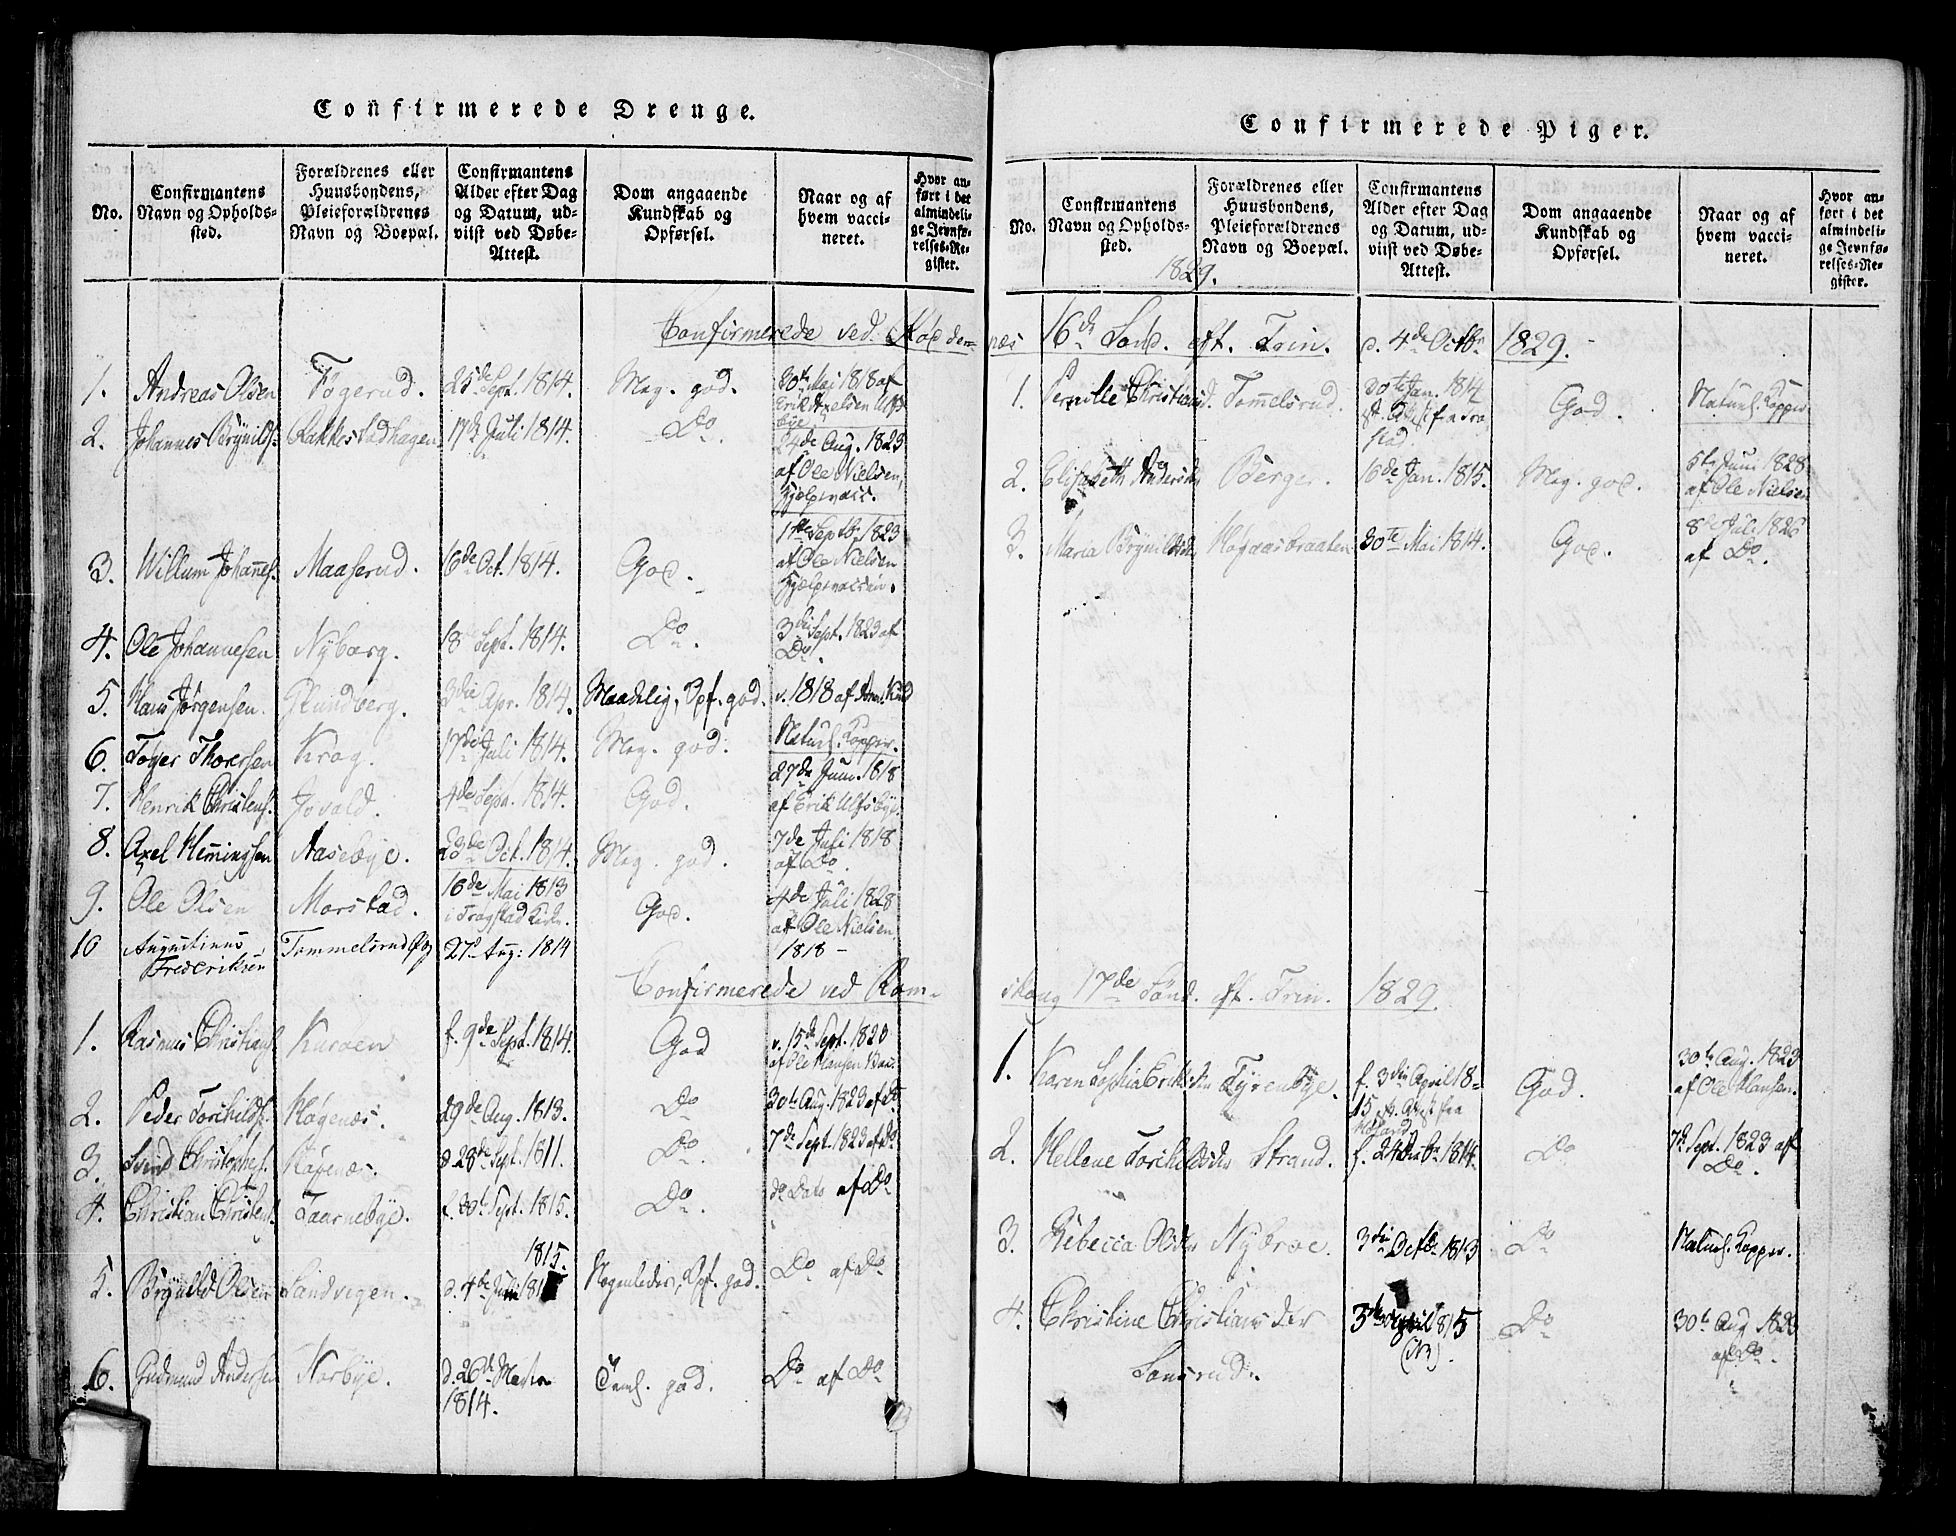 Confirmerede Drenge.
No.
Confirmantens Navn og Opholds-sted.
Forældrenes eller Huusbondens, Pleieforældrenes Navn og Boepæl.
Confirmantens Alder efter Dag og Datum, ud-viist ved Døbe-Attest.
Dom angaaende Kundskab og Opførsel.
Naar og af hvem vacci-neret.
Hvor an-ført i det almindeli-ge Jevnfø-relses-Re-gister.
Confirmerede ved
1. Andreas Olsen Togerud. 25de Sept. 1814. Meg. god. 30te Mai 1818 af
Erik Axelsen Ulfs
bye
2. Johannes Brynilds. Rakkestadhagen 17de Juli 1814. Do. 24de Aug. 1823
af Ole Nielsen,
Hjelpevacc.
3. Willum Johannes. Maaserud. 16de Oct. 1814. God. 1ste Septb. 1823
af Ole Nielsen
4. Ole Johannesen Nyborg. 18de Sept. 1814. Do. 3die Sept. 1823 af
Do.
5. Hans Jørgensen. Grundberg. 3die Apr. 1814. Maadelig, Opf. god. v. 1818 af
6. Toger Thoresen Krog. 17de Juli 1814. Meg. god. Naturl. Kopper.
7. Henrik Christens. 4de Sept. 1814. God. 27de Juni 1818
af Erik Ulfsbye.
8. Axel Hemingsen Aasebye. 23de Oct. 1814. Meg. god. 7de Juli 1818
af Do.
9. Ole Olsen Morstad. 16de Mai 1813
i Trøgstad Kirke. God. 4de Juli 1828
af Ole Nielsen.
10 Augustinus
Frederiksen Tommelsrud 27de Aug: 1814 1818 –
Confirmerede ved Rom-
1. Rasmus Christians. Kuroen f. 9de Sept. 1814. God v. 15de Sept. 1820
af Ole Hansen
2. Peder Torkilds. Høgenæs. 29de Aug. 1813. Do 30te Aug. 1823 af Do
3. Svend Christophers. 28de Sept. 1811. Do. 7de Sept. 1823 af Do
4. Christian Christens. Taarnebye. f. 30te Sept. 1815. Do. do Dato af Do
5. Brynild Olsen Sandvegen. d. 4de Juli 1815. Nogenledes, Opf. god. Do af Do
6. Gudmund Andersen Norbye. d. 26de
1814. god. Do af Do
Confirmerede Piger.
No.
Confirmantens Navn og Opholds-sted.
Forældrenes eller Huusbondens, Pleieforældrenes Navn og Boepæl.
Confirmantens Alder efter Dag og Datum, ud-viist ved Døbe-Attest.
Dom angaaende Kundskab og Opførsel.
Naar og af hvem vacci-neret.
Hvor an-ført i det almindeli-ge Jevnfø-relses-Re-gister.
1829.
næs 16de Sønd. eft. Trin. d. 4de Octbr 1829.
1. Pernille Christiansd. Tommelsrud. 30te Jan. 1814
God. Naturl. Kopper.
2. Elisabeth Andersdr Berger. 16de Jan. 1815. Meg. god. 5te Juni 1828
af Ole Nielsen
3. Maria Brynildsdr. Høgnæsbraaten 30te Mai 1814. God. 8de Juli 1826
af Do.
skoug 17de Sønd. eft. Trin. 1829.
1. Karen Sophia Eriksdr Tyrenbye. f. 3die April 18-
15 God. 30te Aug. 1823
af Ole Hansen.
2. Hellene Torkildsdr Strand. f. 24de 1814. Do 7de Sept. 1823 af
Do.
3. Rebecca Olsdr Nybroe. 3die 1813 Do Naturl. Kopper.
4. Christine Christiansdr
Sonsrud. 3die April 1815
(NB). Do 30te Aug 1823
af Do.